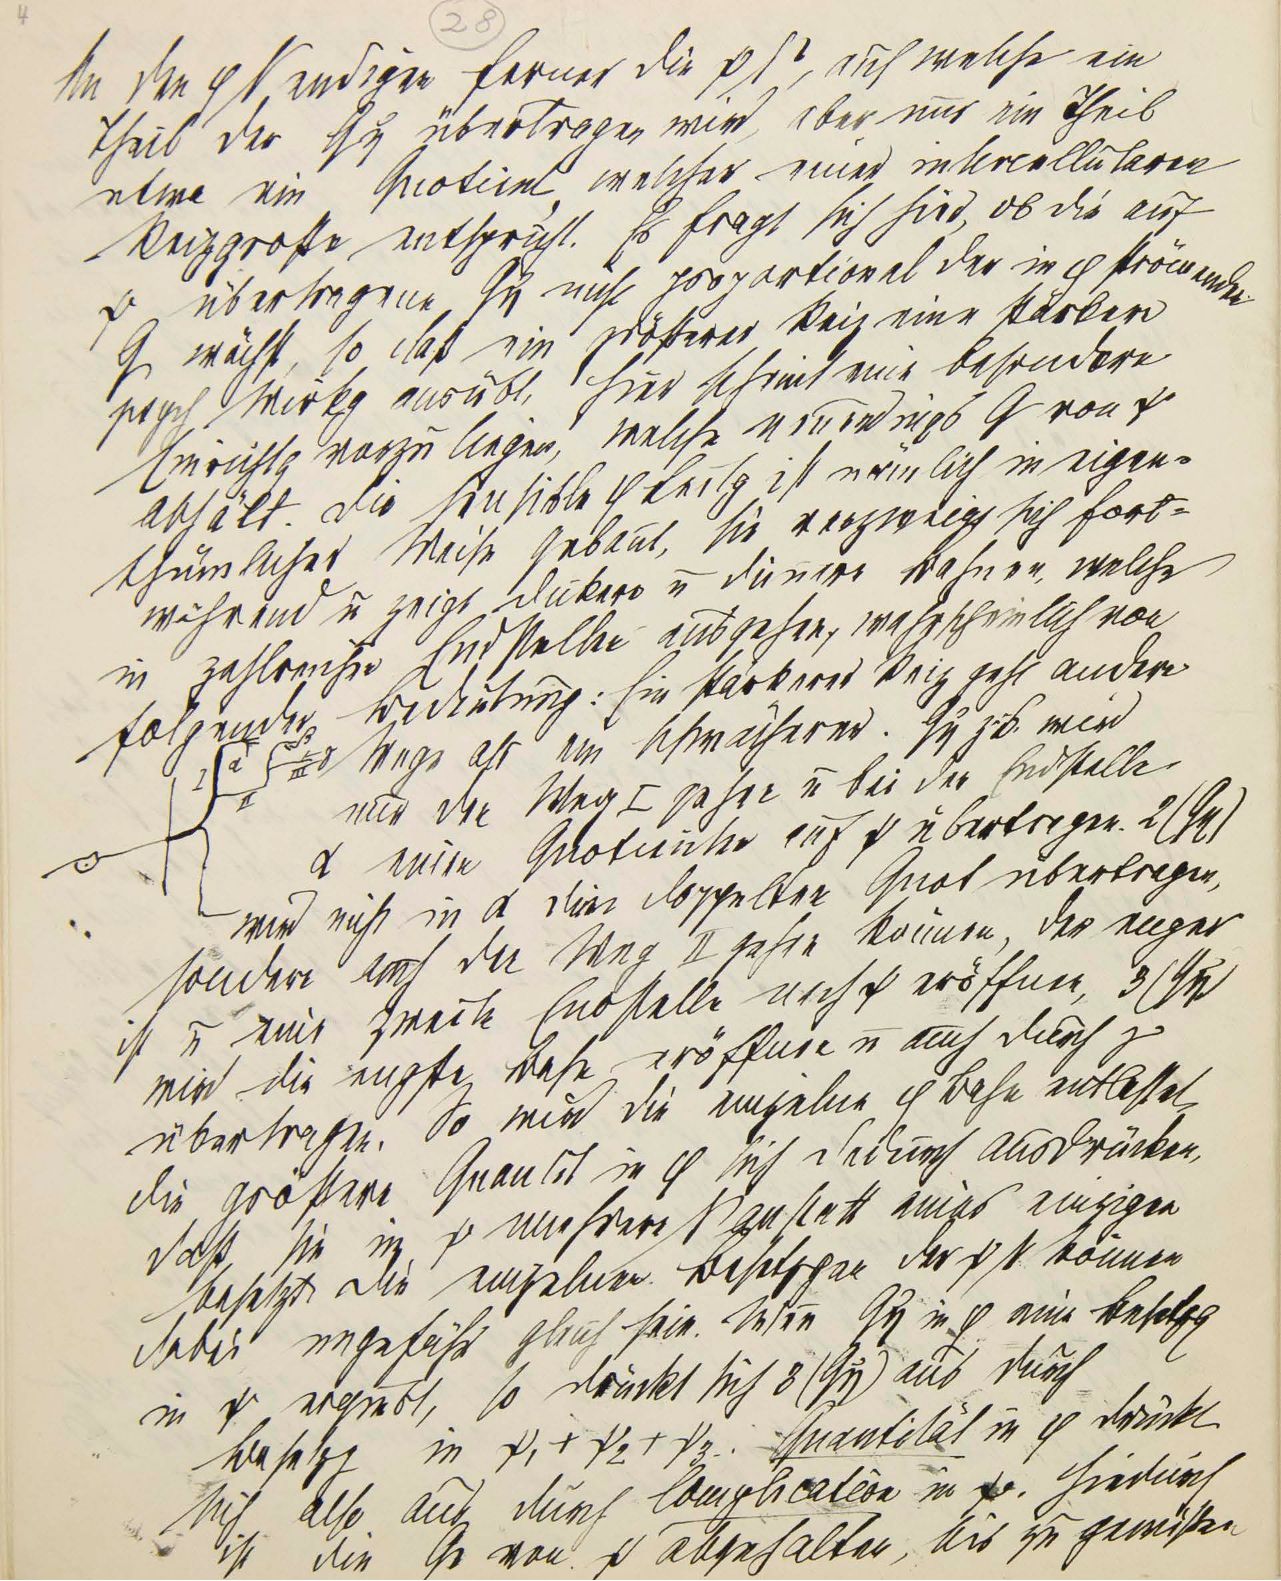 4
28
An den φ N endigen ferner die ψ N, auf welche ein
Theil der Qή übertragen wird, aber nur ein Theil
etwa ein Quotient, welcher einer intercellularen
Reizgröße entspricht. Es fragt sich hier, ob die auf
ψ übertragene Qή nicht proportional der in φ strömenden
Q wächst, so daß ein größerer Reiz eine stärkere
psych Wirkg ausübt. Hier scheint eine besondere
Einrichtg vorzuliegen, welche neuerdings Q von ψ
abhält. Die sensible φ Leitg ist nämlich in eigen=
thümlicher Weise gebaut, sie verzweigt sich fort=
während u zeigt dickere u dünnere Bahnen, welche
in zahlreichen Endstellen ausgehen, wahrscheinlich von
folgender Bedeutung: Ein stärkerer Reiz geht andere
Wege als ein schwächerer. Qή z.b. wird
nur den Weg I gehen u bei der Endstelle
I α II III
α einen Quotienten auf ψ übertragen. 2(Qή)
wird nicht in α den doppelten Quot übertragen,
sondern auch den Weg II gehen können, der enger
ist u eine zweite Endstelle nach ψ eröffnen, 3(Qή)
wird die engste Bahn eröffnen u auch durch γ
übertragen. So wird die einzelne φ Bahn entlastet,
die größere Quantit in φ sich dadurch ausdrücken,
daß sie in ψ mehrere N anstatt eines einzigen
besetzt. Die einzelnen Besetzgen der ψ N können
dabei ungefähr gleich sein. Wenn Qή in φ eine Besetzg
in ψ ergiebt, so drückt sich 3(Qή) aus durch
Besetzg in ψ1 + ψ2 + ψ3. Quantität in φ drückt
sich also aus durch Complication in ψ. Hiedurch
ist die Q von ψ abgehalten, bis zu gewissen